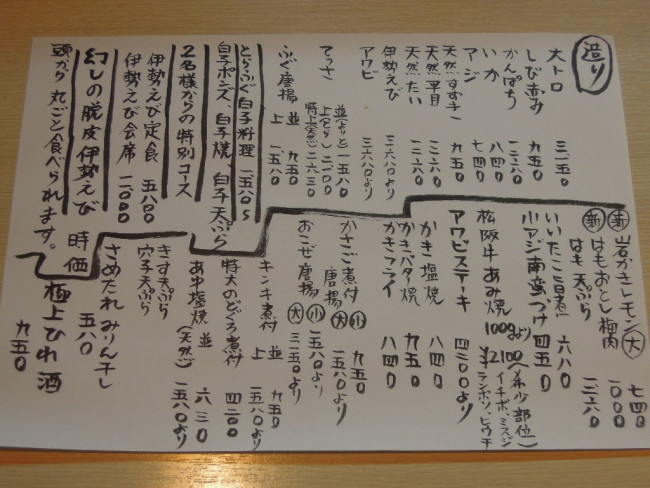 造り
大トロ 三一五〇
しび赤み 九五〇
かんぱち 八四〇
いか 七四〇
アジ 九五〇
天然すずき 一二六〇
天然平目 一二六〇
天然たい
伊勢えび 三一六八〇より
アワビ 三一六八〇より
てっさ 並(よりとら) 一五八〇
上(とら) 二一〇〇
特上(天然) 二六三〇
ふぐ唐揚 並 九五〇
上 一五八〇
とらふぐ白子料理 一五八〇〜
白子ポンズ、白子焼、白子天ぷら
2名様からの特別コース
伊勢えび定食 五八〇〇
伊勢えび会席 一二〇〇〇
幻しの脱皮伊勢えび 時価
頭から丸ごと食べられます。
新 岩かきレモン 大 七四〇
新 はもおとし梅肉 一〇〇〇
はも天ぷら 一二六〇
いいだこ旨煮 六八〇
小アジ南蛮づけ 四五〇
松阪牛あみ焼 100gより ¥2100〜
(希少部位)
イチボ、ミスジ
ランボソ、ヒウチ
アワビステーキ 四二〇〇より
かき塩焼 八四〇
かきバター焼 九五〇
かきフライ 八四〇
かさご煮付 小 九五〇
唐揚 大 一五八〇より
おこぜ唐揚 小 一五八〇より
大 三一五〇より
キンキ煮付 並 九五〇
上 一五八〇より
特大のどぐろ煮付 四二〇〇
あゆ塩焼 並 六三〇
(天然) 一五八〇より
きす天ぷら
穴子天ぷら
さめたれみりん干し 五八〇
極上ひれ酒 九五〇